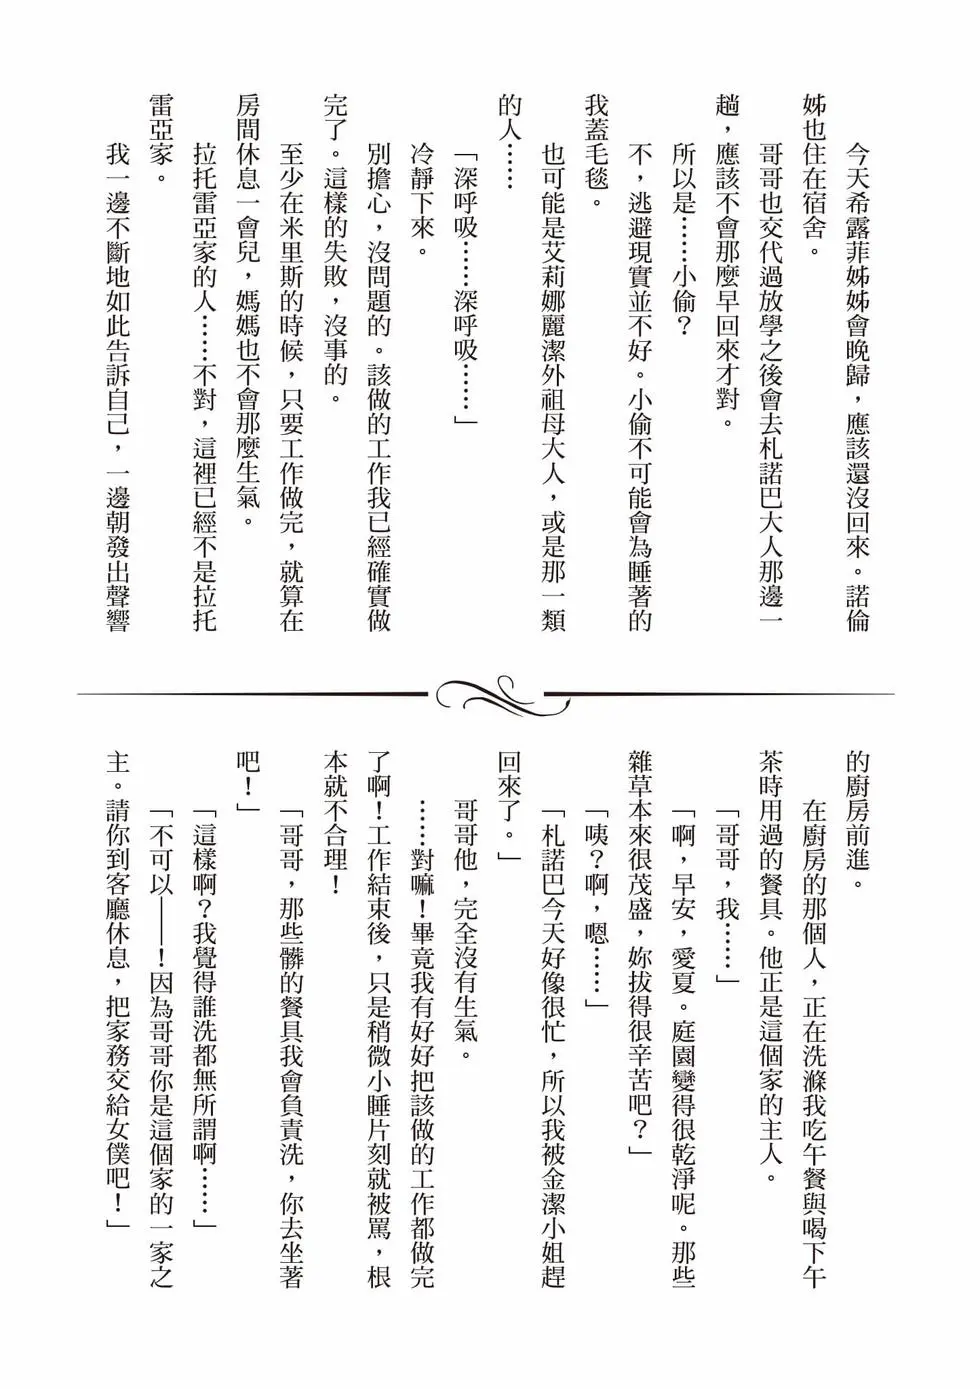 今天希露菲姊姊會晚歸，應該還沒回來。諾倫
姊也住在宿舍。
哥哥也交代過放學之後會去札諾巴大人那邊一
趟，應該不會那麼早回來才對。
所以是……小偷？
不，逃避現實並不好。小偷不可能會為睡著的
我蓋毛毯。
也可能是艾莉娜麗潔外祖母大人，或是那一類
的人……
「深呼吸……深呼吸……」
冷靜下來。
別擔心，沒問題的。該做的工作我已經確實做
完了。這樣的失敗，沒事的。
至少在米里斯的時候，只要工作做完，就算在
房間休息一會兒，媽媽也不會那麼生氣。
拉托雷亞家的人……不對，這裡已經不是拉托
雷亞家。
我一邊不斷地如此告訴自己，一邊朝發出聲響
的廚房前進。
在廚房的那個人，正在洗滌我吃午餐與喝下午
茶時用過的餐具。他正是這個家的主人。
「哥哥，我……」
「啊，早安，愛夏。庭園變得很乾淨呢。那些
雜草本來很茂盛，妳拔得很辛苦吧？」
「咦？啊，嗯……」
「札諾巴今天好像很忙，所以我被金潔小姐趕
回來了。」
哥哥他，完全沒有生氣。
……對嘛！畢竟我有好好把該做的工作都做完
了啊！工作結束後，只是稍微小睡片刻就被罵，根
本就不合理！
「哥哥，那些髒的餐具我會負責洗，你去坐著
吧！」
「這樣啊？我覺得誰洗都無所謂啊……」
「不可以——！因為哥哥你是這個家的一家之
主。請你到客廳休息，把家務交給女僕吧！」